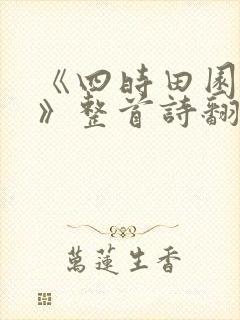 《四時田園
》整首詩翻
萬蓮生香